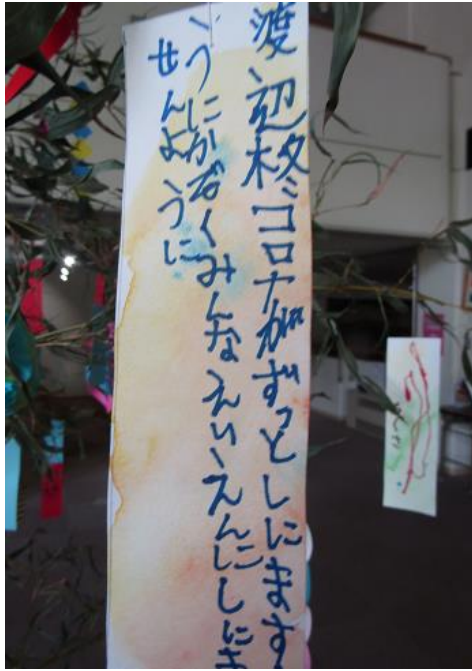 渡辺格ミコロナがずっとしにます
ようにかぞくみんなえいえんにしにま
せんように